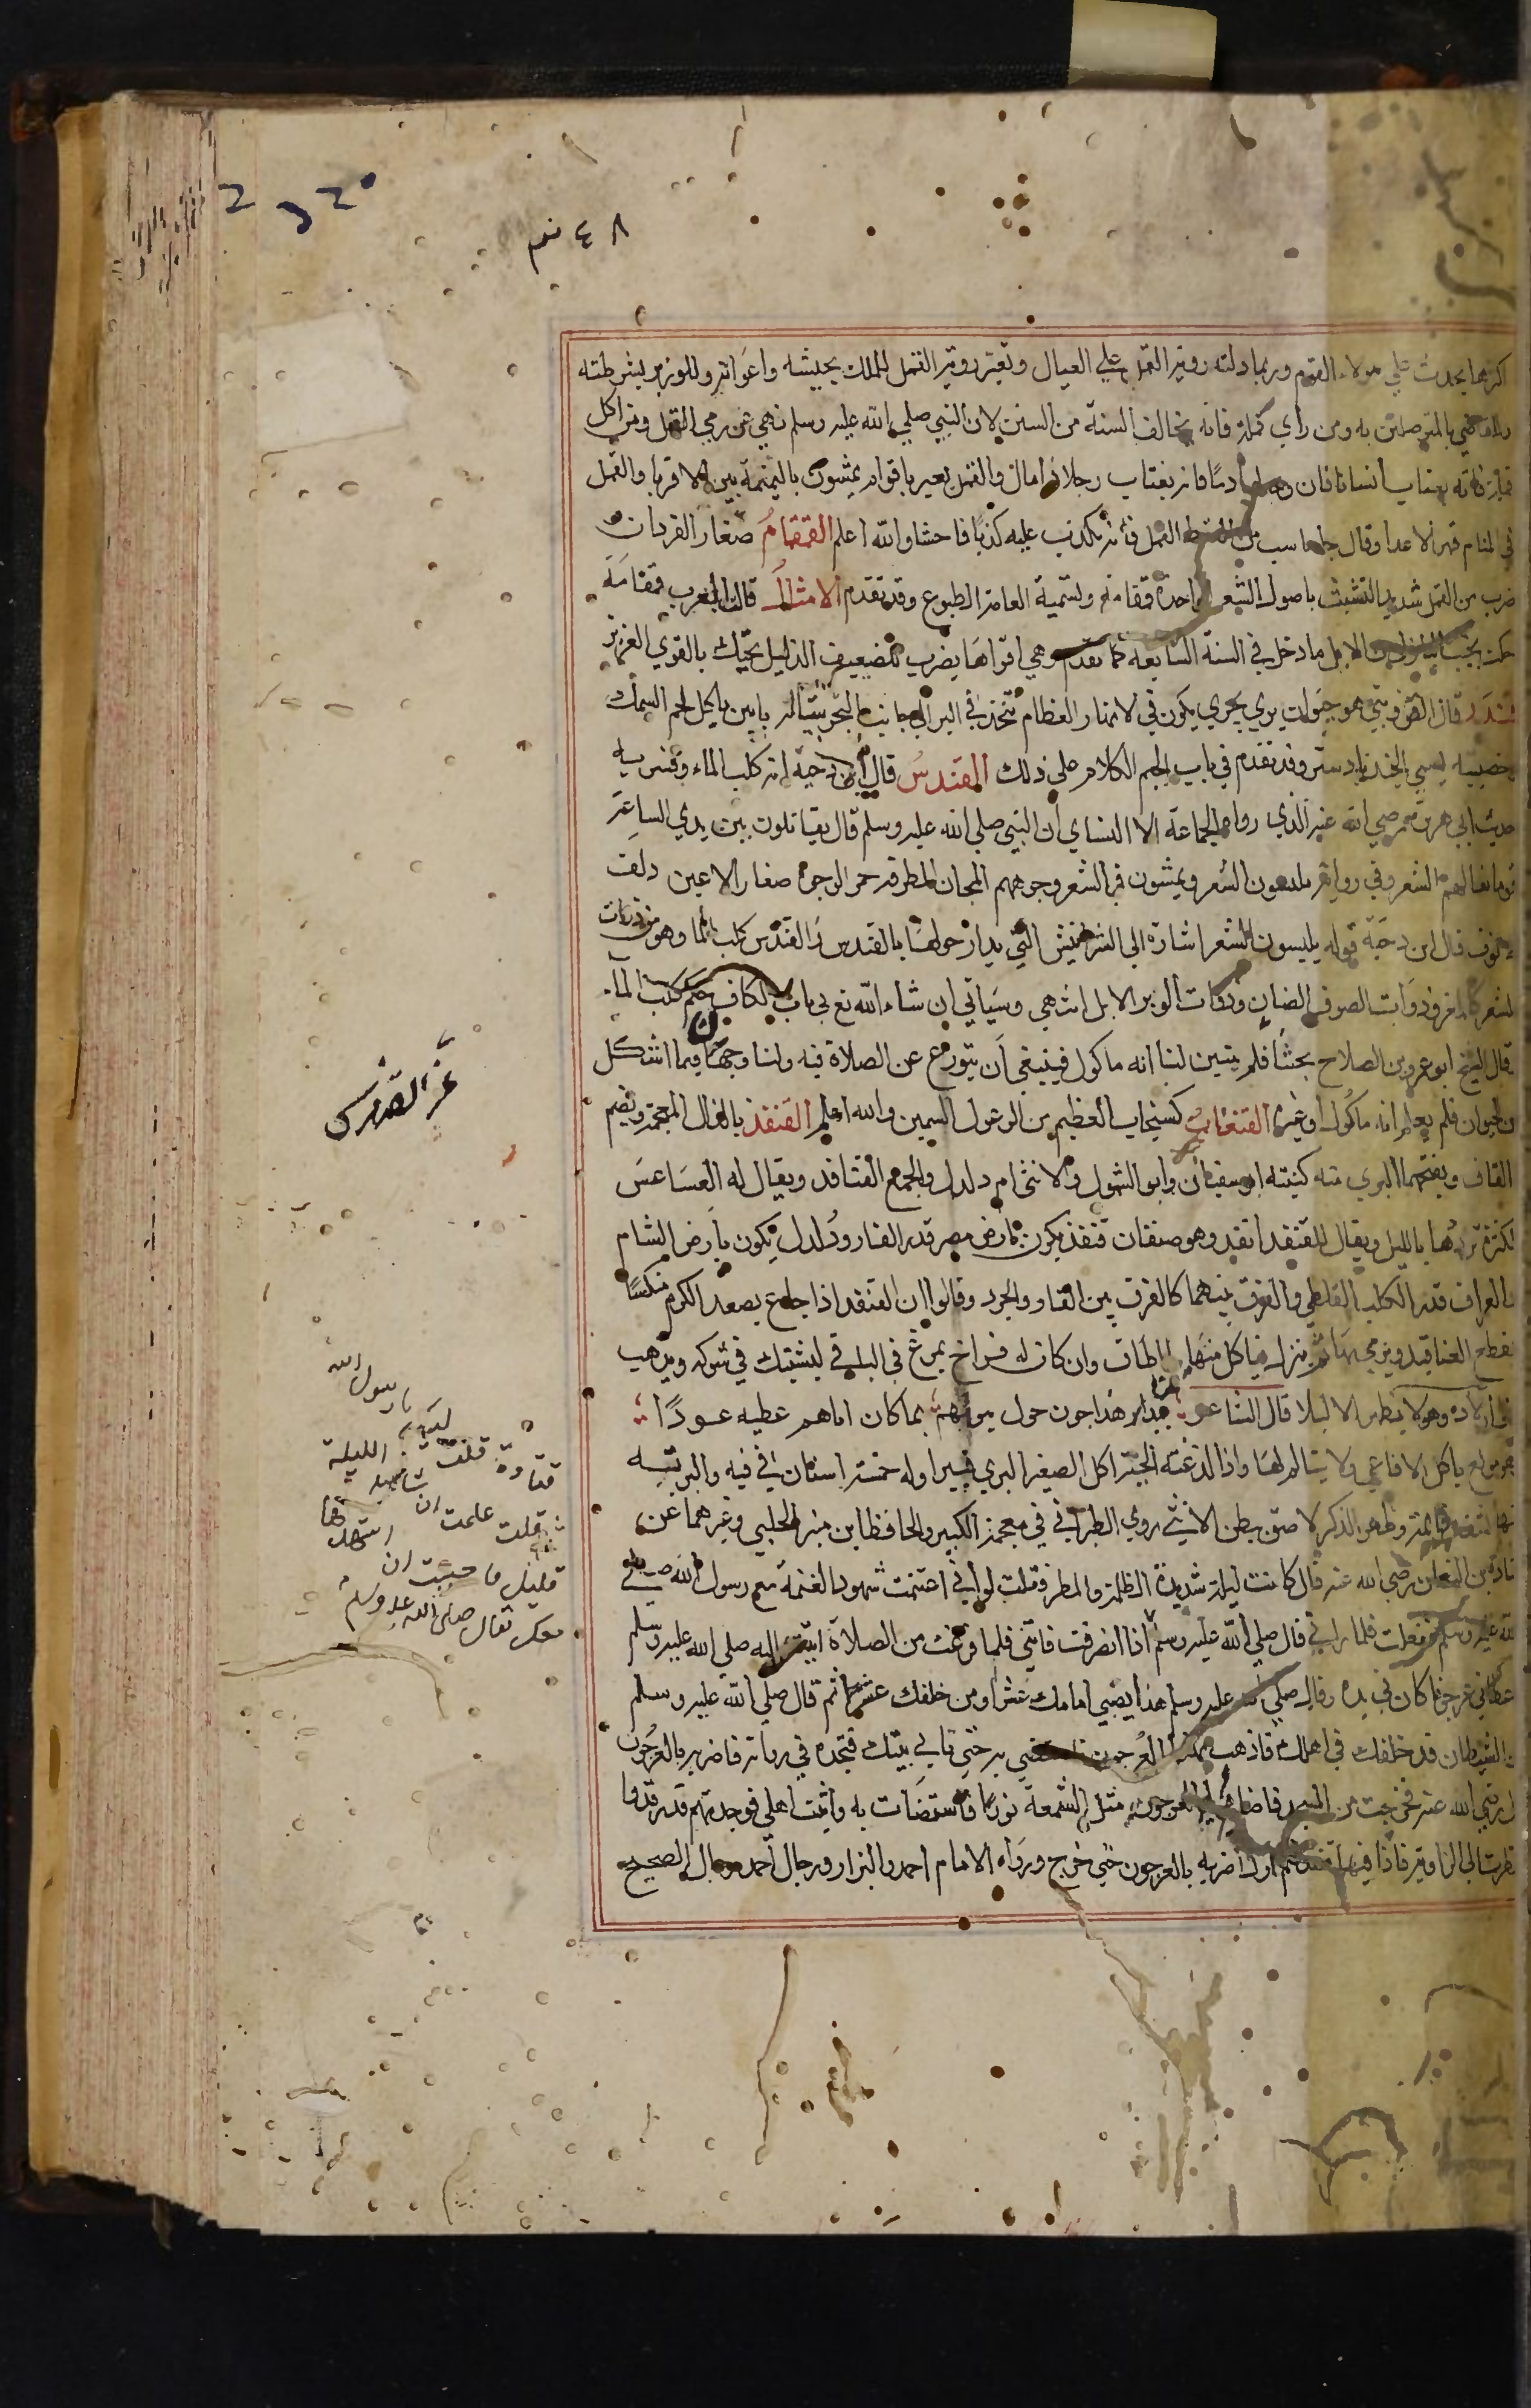 ٤٨ نم
اكثرها يحدث علي هولاء القوم وربما دلته روية القمل علي العيال وتعبر روية القمل للملك بجيشه واعوانه وللوزير بشرطته
وللقاضي بالمتوصلين به ومن راي قملة فانه يخالف السنة من السنن لان النبي صلي الله عليه وسلم نهي عن رمي القمل ومن اكل
قملة فانه يغتاب انسانا فان فانه يغتاب رجلا ذا مال والقمل يعبر باقوام يمشون بالنميمة بين الاقربا والقمل
في المنام قهر الاعدا وقال جاماسب من القمل فانه يكذب عليه كذبا فاحشا والله اعلم القمقام صغار القردان
ضرب من القمل شديد التشبث باصول الشعر الواحدة قمقامة وتسمية العامة الطبوع وقد تقدم الامثال قالت العرب قمقامة
حكت بجنب البازل من الابل ما دخل في السنة التاسعة كما تقدم وهي اقواها يضرب للضعيف الذليل يحتك بالقوي العزيز
قندر قال القزويني هو حيوان بري بحري يكون في الانهار العظام يتخذ في البر الي جانب البحر بيتا له بابين ياكل لحم السمك
خصيته يسمي الجندبادستر وقد تقدم في باب الجيم الكلام علي ذلك القندس قال ابن دحية انه كلب الماء وفسر به
حديث ابي هريرة رضي الله عنه الذي رواه الجماعة الا النساي ان النبي صلي الله عليه وسلم قال يقاتلون بين يدي الساعة
قوما نعالهم الشعر وفي رواية يلبسون الشعر ويمشون في الشعر وجوههم المجان المطرقة حمر الوجوه صغار الاعين دلف
الانوف قال ابن دحية قوله يلبسون الشعر اشارة الي الشرابيش التي يدار حولها بالقندس والقندس كلب الما وهو من ذوات
الشعر كالمعز وذوات الصوف الضان وذوات الوبر الابل انتهي وسياتي ان شاء الله تع في باب الكاف حكم كلب الماء
قال الشيخ ابو عمرو بن الصلاح بحثنا فلم يتبين لنا انه ماكول فينبغي ان يتورع عن الصلاة فيه ولنا وجهان فيما اشكل
من الحيوان فلم يعلم انه ماكول او غيره القنعاب كسنجاب العظيم من الوعول السمين والله اعلم القنفذ بالذال المعجمة وبضم
القاف وبفتحها البري منه كنيته ابو سفيان وابو الشوك والانثي ام دلدل والجمع القنافد ويقال له العساعس
لكثرة ترددها بالليل ويقال للقنفد انقد وهو صنفان قنفذ يكون بارض مصر قدر الفار ودلدل يكون بارض الشام
والعراق قدر الكلب القلطي والفرق بينهما كالفرق بين الفار والجرد وقالوا ان القنفد اذا جاع يصعد الكرم منكسا
فقطع العناقيد ويرمي بها ثم ينزل فياكل منها ما اطاق وان كان له فراخ يمرغ في الباقي ليشتبك في شوكه ويذهب
الي اولاده وهو لا يظهر الا ليلا قال الشاعر قنافد هداجون حول بيوتهم بما كان اياهم عطيه عودا
وهو مولع ياكل الافاعي ولا يتالم لها واذا لدغته الحية اكل الصغير البري فيبرا وله خمسة اسنان في فيه والبرية
منها تسفد قايمة وظهر الذكر لاصق ببطن الانثي روي الطبراني في معجمه الكبير والحافظ ابن منير الحلبي وغيرهما عن
قتادة بن النعمان رضي الله عنه قال كانت ليلة شديدة الظلمة والمطر فقلت لو اني اغتنمت شهود العتمة مع رسول الله صلي
الله عليه وسلم ففعلت فلما راني قال صلي الله عليه وسلم اذا انصرفت فاتني فلما فرغت من الصلاة اتيت اليه صلي الله عليه وسلم
فاعطاني عرجونا كان في يده وقال صلي الله عليه وسلم هذا يضيي امامك عشرا ومن خلفك عشرا ثم قال صلي الله عليه وسلم
ان الشيطان قد خلفك في اهلك فاذهب بهذا العرجون به حتي تاتي بيتك فتجده في زاوية فاضربه بالعرجون
قال رضي الله عنه فخرجت من المسجد فاضا لي العرجون مثل الشمعة نورا فاستضات به واتيت اهلي فوجدتهم قد رقدوا
نظرت الي الزاوية فاذا فيها قنفد فلم ازل اضربه بالعرجون حتي خرج ورواه الامام احمد والبزار ورجال احمد رجال الصحيح
عز القندس
قتادة قلت لبيك يا رسول الله
قلت علمت ان شاهد الليلة
قليل فاحببت ان اشهدها
معك فقال صلي الله عليه وسلم